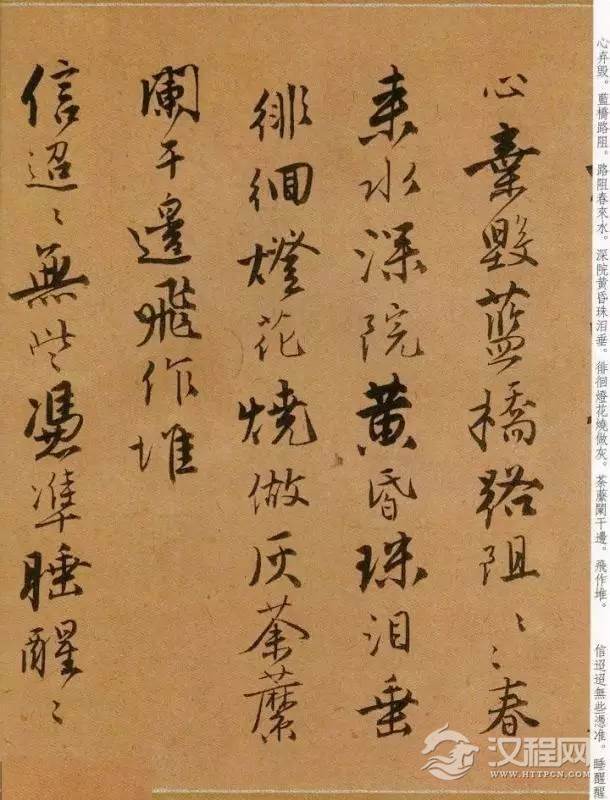 心弃毀。藍橋路阻。路阻春來水。深院黃昏珠泪垂。徘徊燈花燒做灰。荼蘼闌干邊。飛作堆。 信迢迢無些憑准。睡醒醒
心棄毀藍橋路阻〻〻春
來水深院黃昏珠泪垂
徘徊燈花燒做灰荼蘼
闌干邊飛作堆
信迢〻無些憑準睡醒〻
汉程网
WWW.HTTPCN.COM